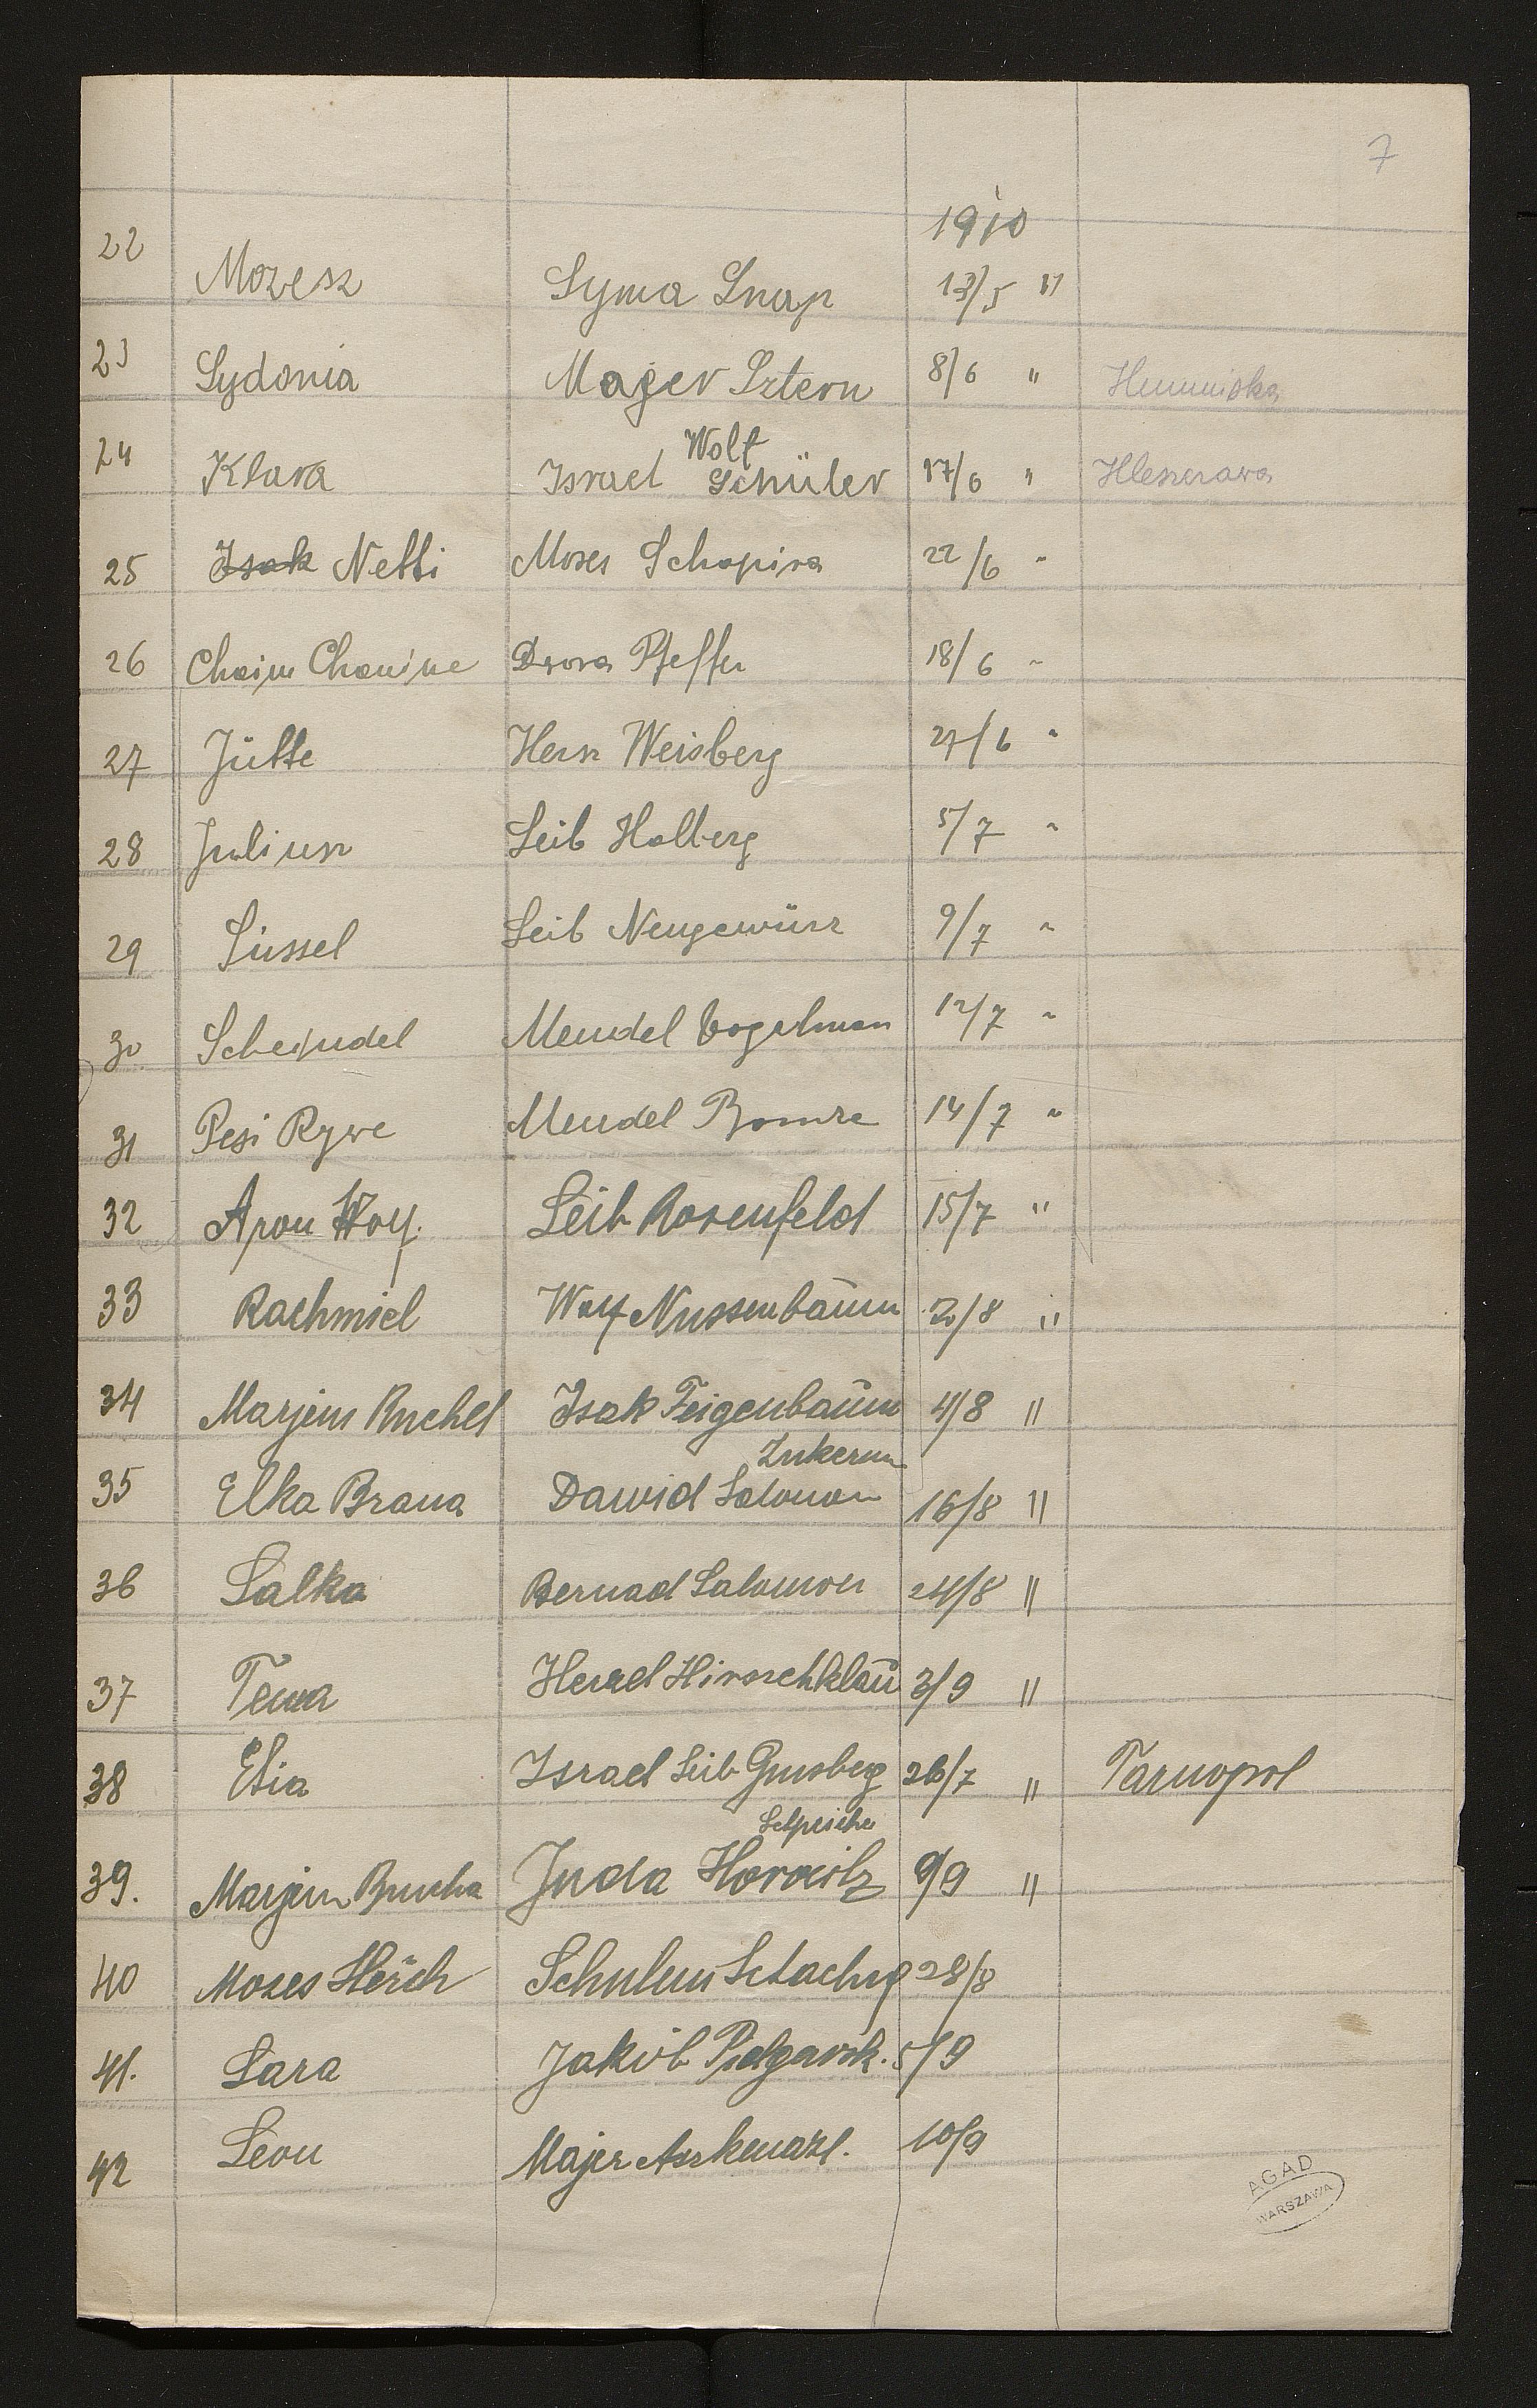 7
1910
22 Mozesz Syma Snap 13/5 "
23 Sydonia Majer Sztern 8/6 " Humniska
Wolf
24 Klara Israel Schüler 17/6 "
25 Isak Netti Moses Schapira 22/6 "
26 Chaim Chanine Dwora Pfeffer 18/6 "
27 Jütte Hersz Weisberg 27/6 "
28 Juliusz Leib Halberg 5/7 "
29 Süssel Leib Neugewürz 9/7 "
30 Scheindel Mendel Vogelman 12/7 "
31 Pesi Rywe Mendel 14/7 "
32 Aron Wolf. Leib Rosenfeld 15/7 "
33 Rachmiel Wolf Nussenbaum 2/8 "
34 Marjem Ruchel Isak Feigenbaum 4/8 "
35 Elka Brana Dawid Salomon 16/8 "
36 Salka Bernad Salomon 24/8 "
37 Tema Hersch 3/9 "
38 Etia Israel Leib Ginsberg 26/7 " Tarnopol
39. Marjem Brucha Juda Horowitz 9/9 "
40 Mozes Hersch Schulem 28/8
41. Sara Jakób 5/9
42 Leon Majer Aszkenazi. 10/9
AGAD
WARSZAWA